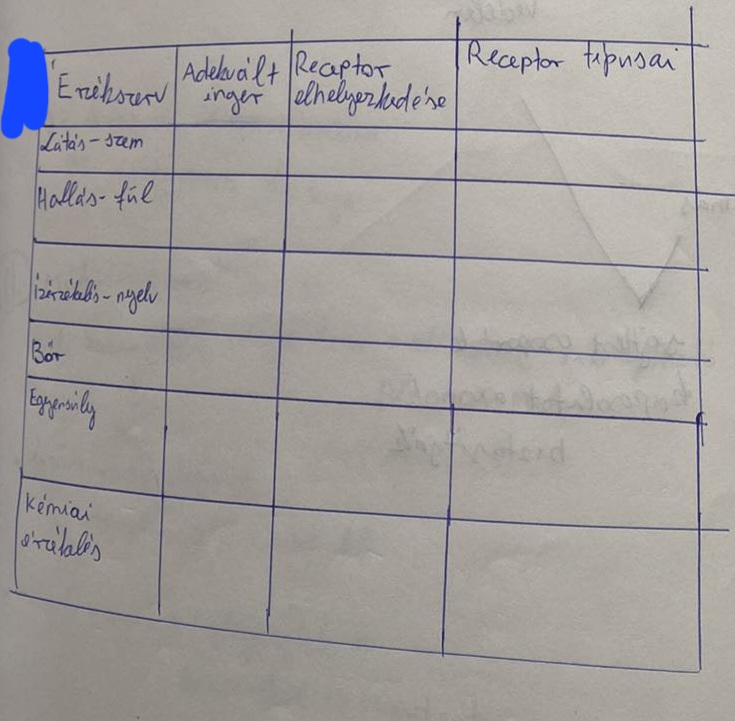 Érzékszerv
Adekvált
inger
Receptor
elhelyezkedése
Receptor típusai
Látás - szem
Hallás - fül
ízérzékelés - nyelv
Bőr
Egyensúly
Kémiai
érzékelés